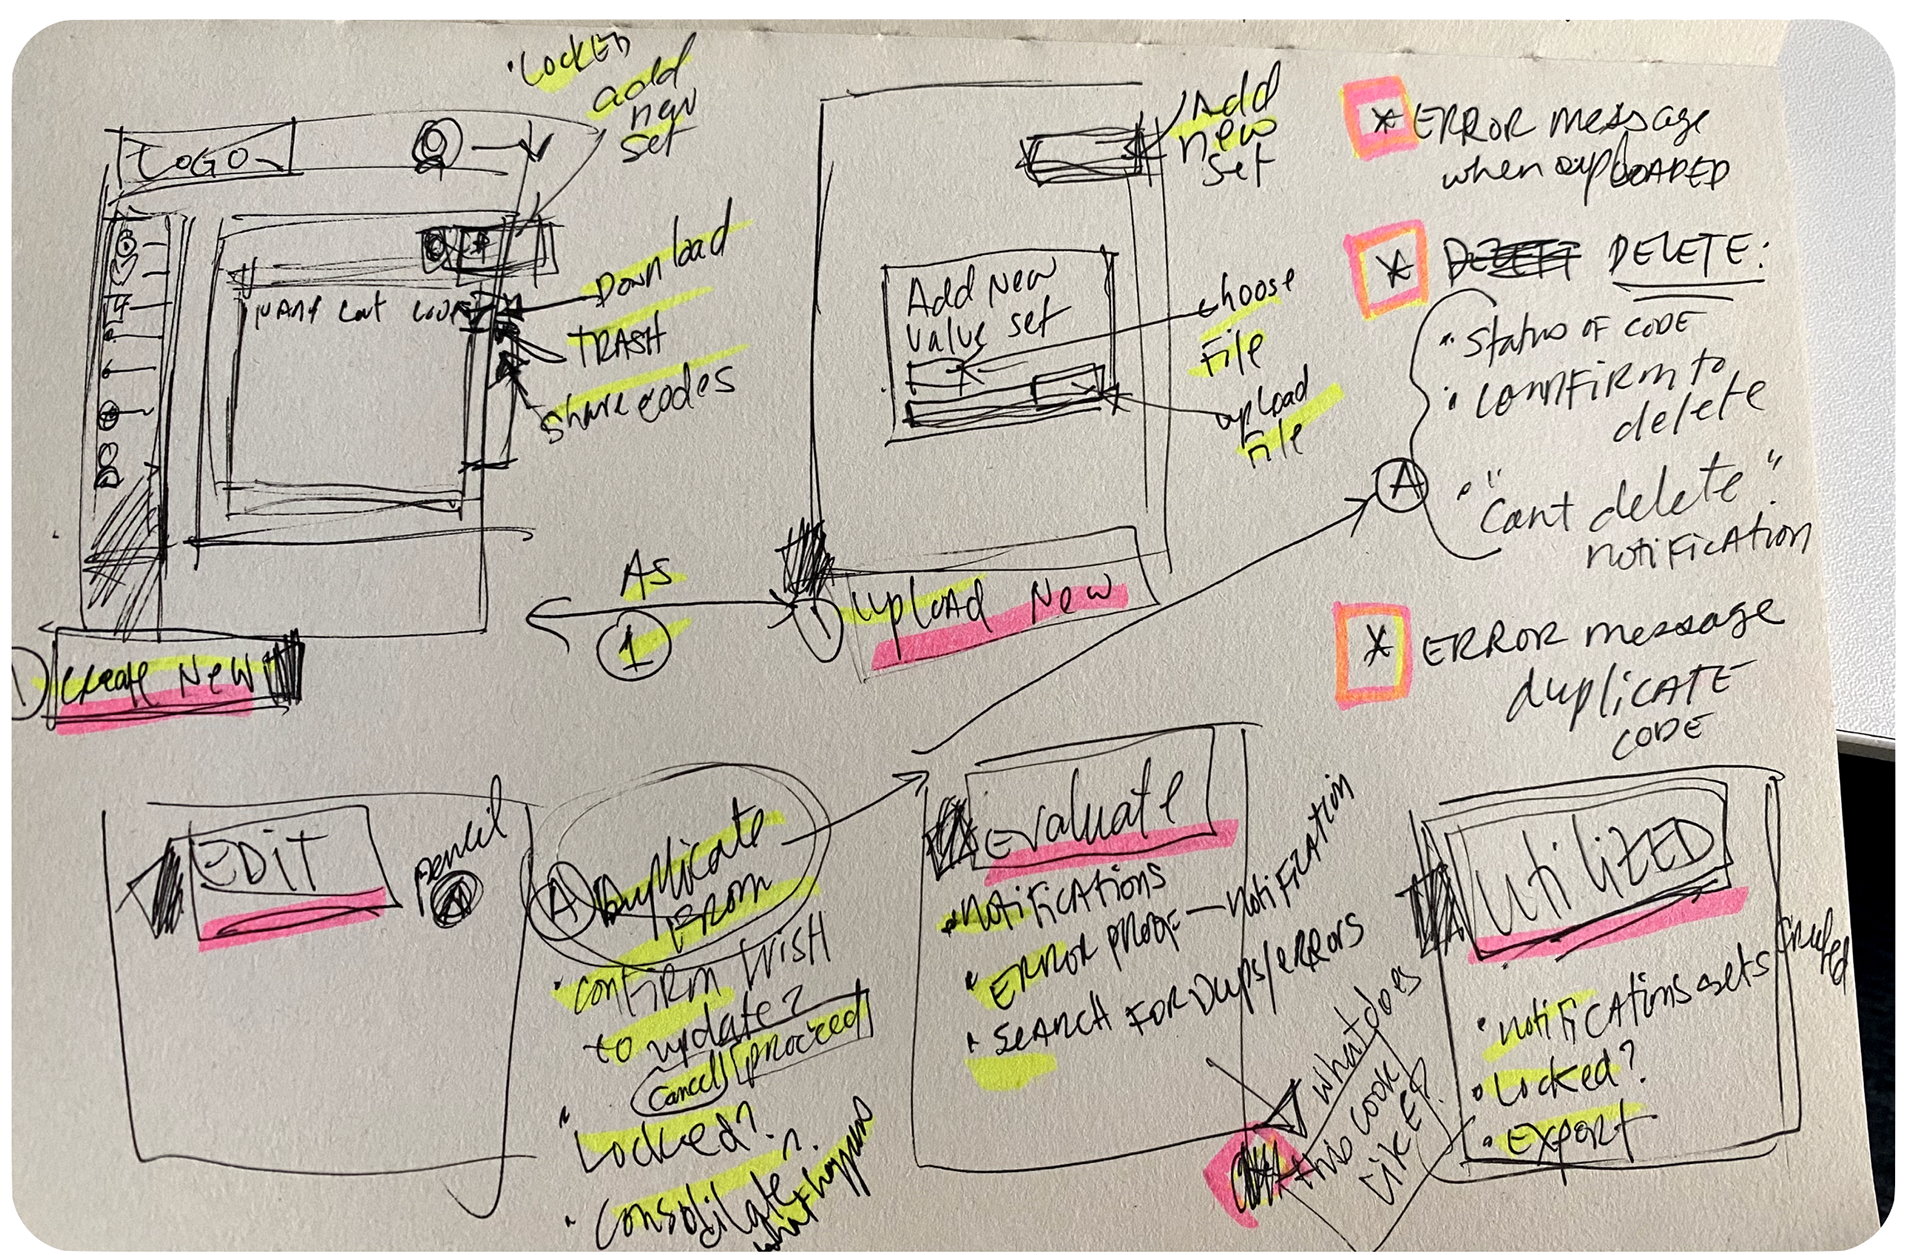 • LOCKED
add
new
set
LOGO
Download
TRASH
share codes
1
Create New
Add
new
set
Add New
value set
choose
File
upload
File
As
1
1
Upload New
* ERROR message
when uploaded
* DELETE:
• Status of code
• CONFIRM to
delete
A
• "Cant delete"
notification
* ERROR message
duplicate
CODE
EDIT
pencil
A
A Duplicate
FROM
• confirm wish
to update?
Cancel proceed
• Locked?
• Consolidate?
what happens
Evaluate
• Notifications
• ERROR PROOF — Notification
• SEARCH FOR Dups/errors
what does
this look
like?
UtiLIZED
• Notifications sets
• Locked?
• Export